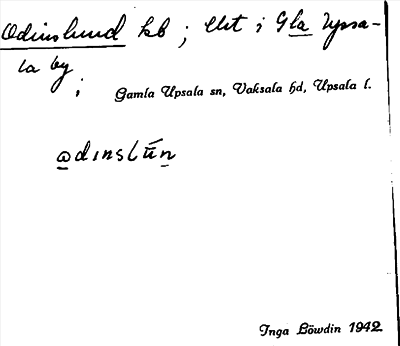 Odinslund kb ; Ekt i Gla Upsa-
la by ;
Gamla Upsala sn, Vaksala hd, Upsala l.
ɷdınslūn
Inga Löwdin 1942